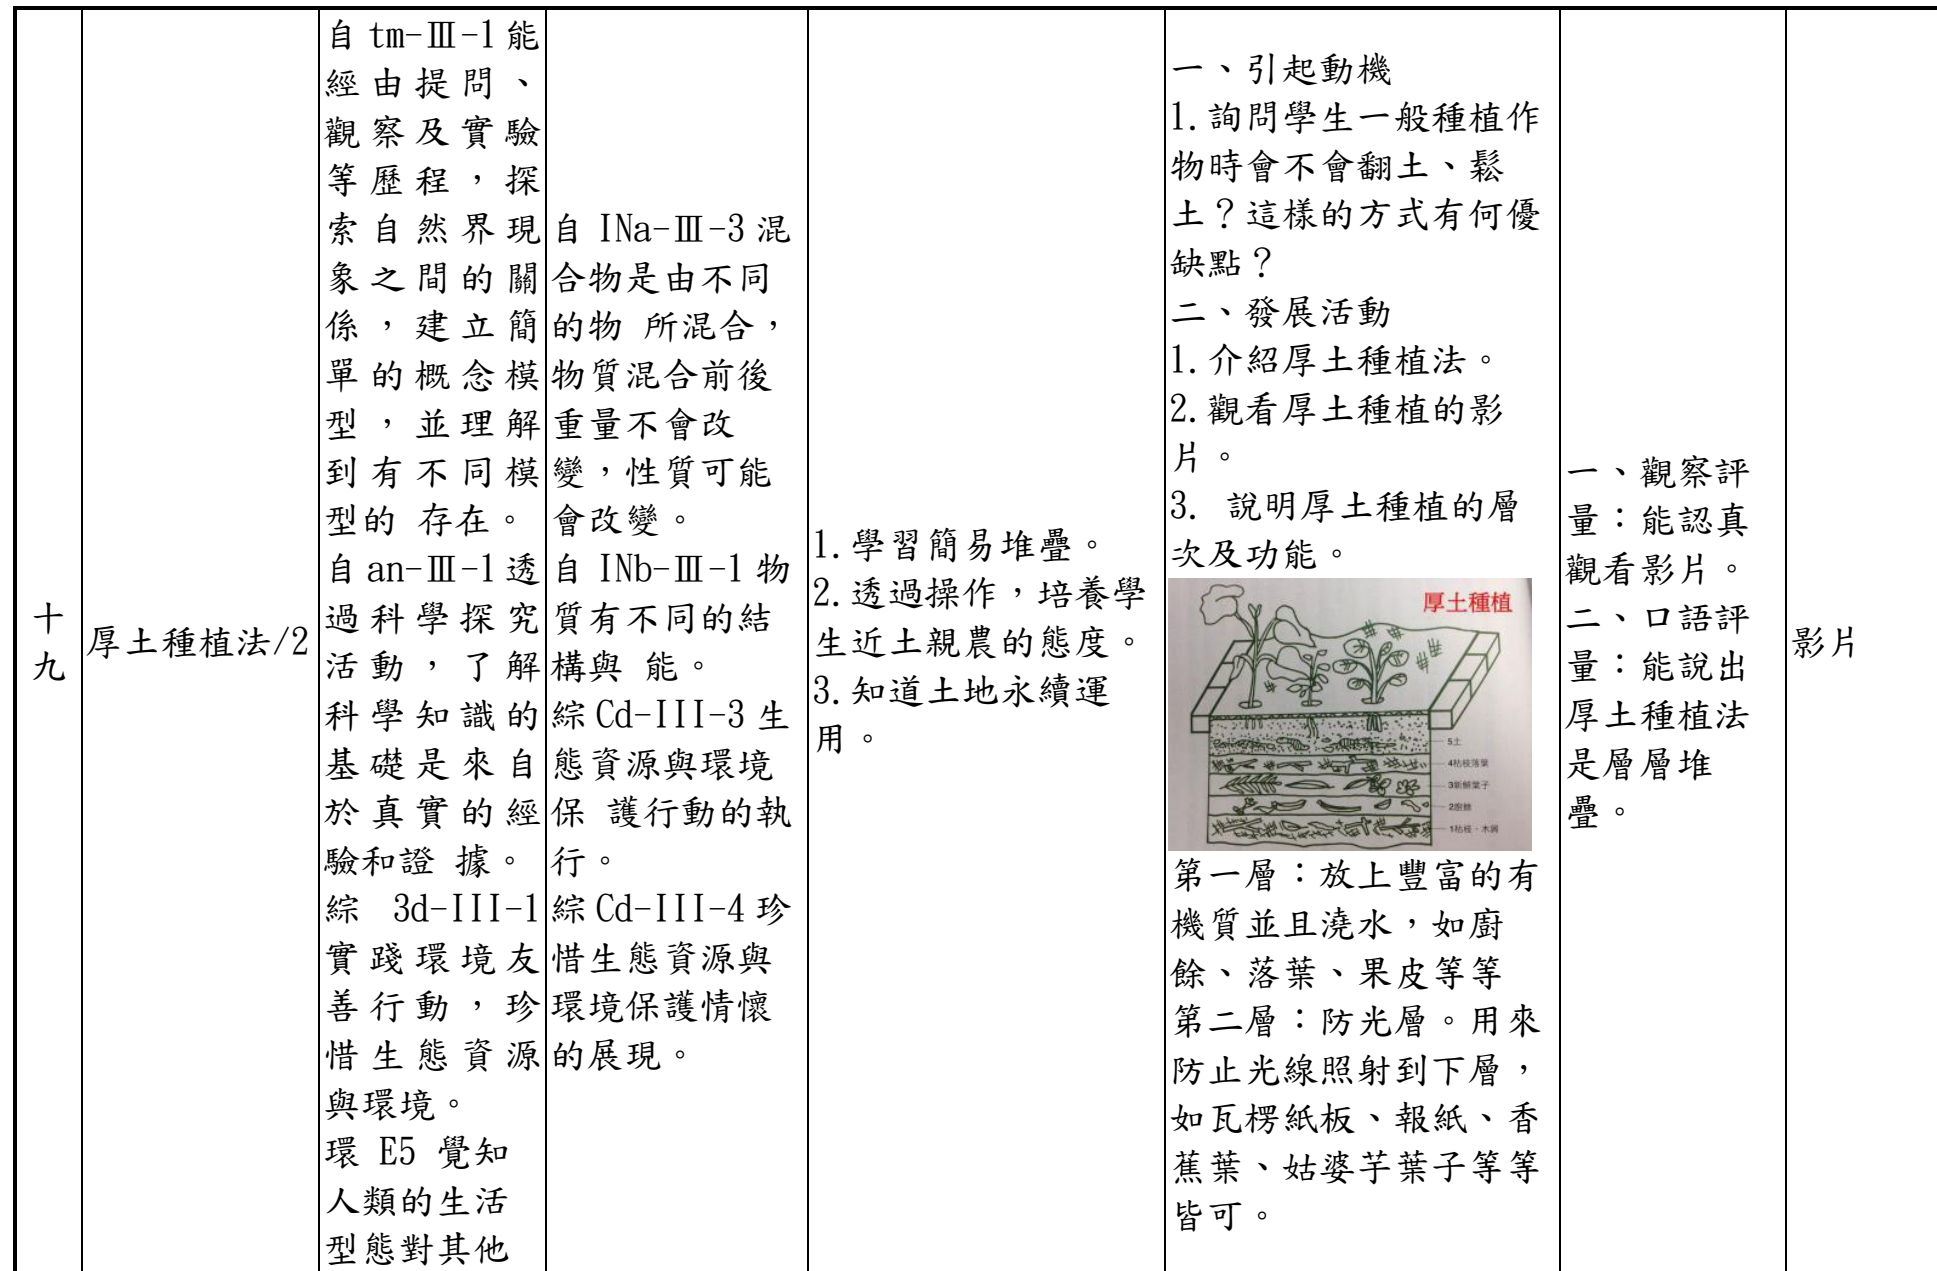 十
九
厚土種植法/2
自 tm-Ⅲ-1 能
經由提問、
觀察及實驗
等歷程，探
索自然界現
象之間的關
係，建立簡
單的概念模
型，並理解
到有不同模
型的 存在。
自 an-Ⅲ-1 透
過科學探究
活動，了解
科學知識的
基礎是來自
於真實的經
驗和證 據。
綜 3d-III-1
實踐環境友
善行動，珍
惜生態資源
與環境。
環 E5 覺知
人類的生活
型態對其他
自 INa-Ⅲ-3 混
合物是由不同
的物 所混合，
物質混合前後
重量不會改
變，性質可能
會改變。
自 INb-Ⅲ-1 物
質有不同的結
構與 能。
綜 Cd-III-3 生
態資源與環境
保 護行動的執
行。
綜 Cd-III-4 珍
惜生態資源與
環境保護情懷
的展現。
1.學習簡易堆疊。
2.透過操作，培養學
生近土親農的態度。
3.知道土地永續運
用。
一、引起動機
1.詢問學生一般種植作
物時會不會翻土、鬆
土？這樣的方式有何優
缺點？
二、發展活動
1.介紹厚土種植法。
2.觀看厚土種植的影
片。
3. 說明厚土種植的層
次及功能。
厚土種植
5土
4枯枝落葉
3新鮮葉子
2廚餘
1枯枝．木屑
第一層：放上豐富的有
機質並且澆水，如廚
餘、落葉、果皮等等
第二層：防光層。用來
防止光線照射到下層，
如瓦楞紙板、報紙、香
蕉葉、姑婆芋葉子等等
皆可。
一、觀察評
量：能認真
觀看影片。
二、口語評
量：能說出
厚土種植法
是層層堆
疊。
影片